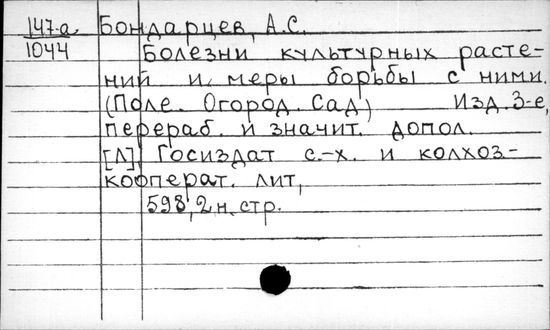 147-а Бондарцев, А.С.
1044 Болезни культурных расте-
ний и меры борьбы с ними.
(Поле. Огород. Сад) Изд. 3-е,
перераб. и значит. допол.
[Л], Госиздат с.-х. и колхоз-
кооперат. лит,
598, 2 н. стр.